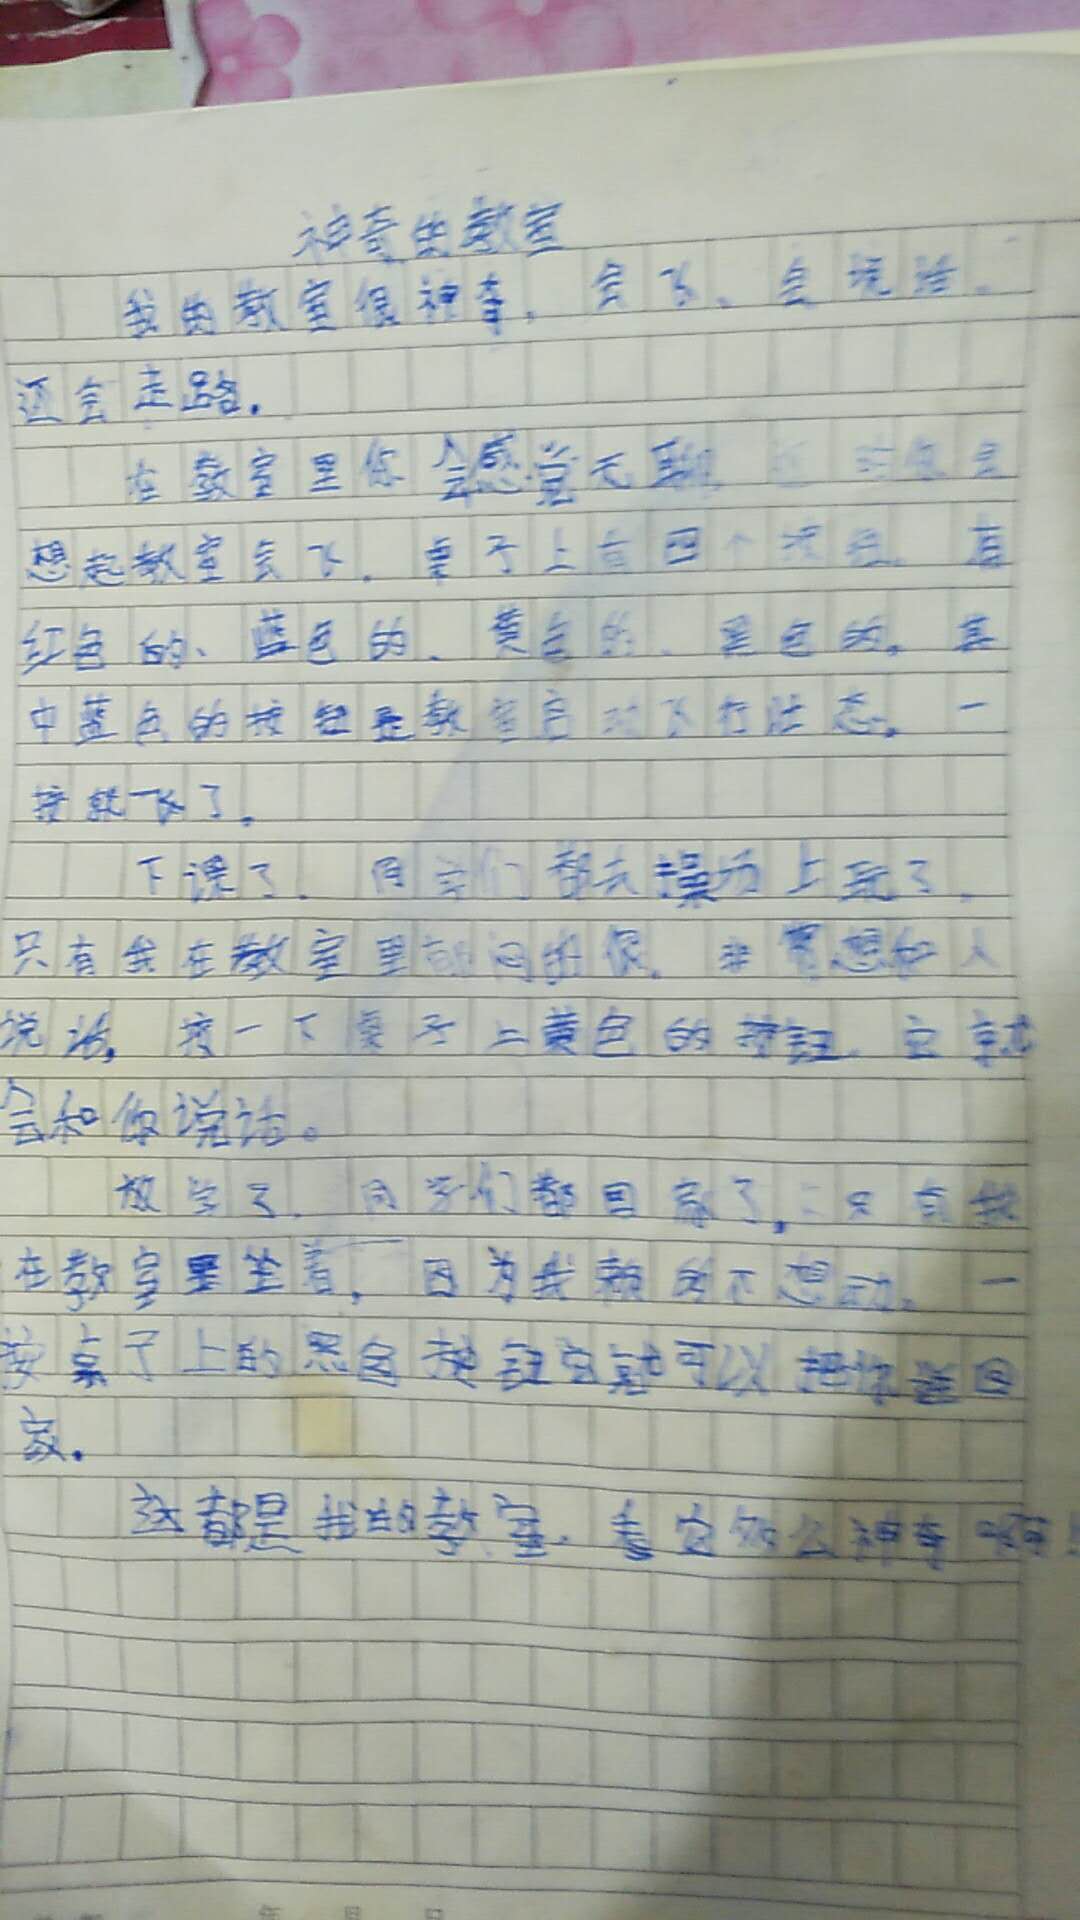 神奇的教室
我的教室很神奇,会飞、会说话、
还会走路。
在教室里你会感觉无聊 时你会
想起教室会飞,桌子上有四个按钮,有
红色的、蓝色的、黄色的、黑色的。其
中蓝色的按钮是教室启动飞行状态。一
按就飞了。
下课了,同学们都去操场上玩了,
只有我在教室里 闷的很,非常想和人
说话,按一下桌子上黄色的按钮,它就
会和你说话。
放学了,同学们都回家了,只有我
在教室里坐着,因为我懒的不想动,一
按桌子上的黑色按钮它就可以把你送回
家。
这都是我的教室,看它多么神奇啊
年 月 日